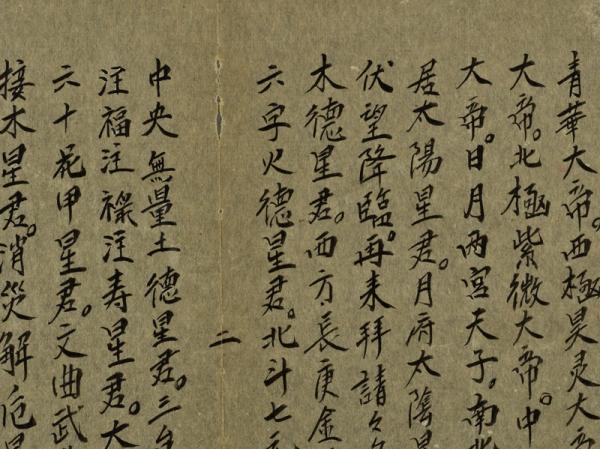 青華大帝。西極昊灵大
大帝。北極紫微大帝。中
大帝。日月两宮天子。南北
居太陽星君。月府太陰星
伏望降臨。再来拜請々
木德星君。西方長庚金
六字火德星君。北斗七
二
中央無量土德星君。三台
注福注祿注寿星君。大
六十花甲星君。文曲武
接木星君。消災解厄星